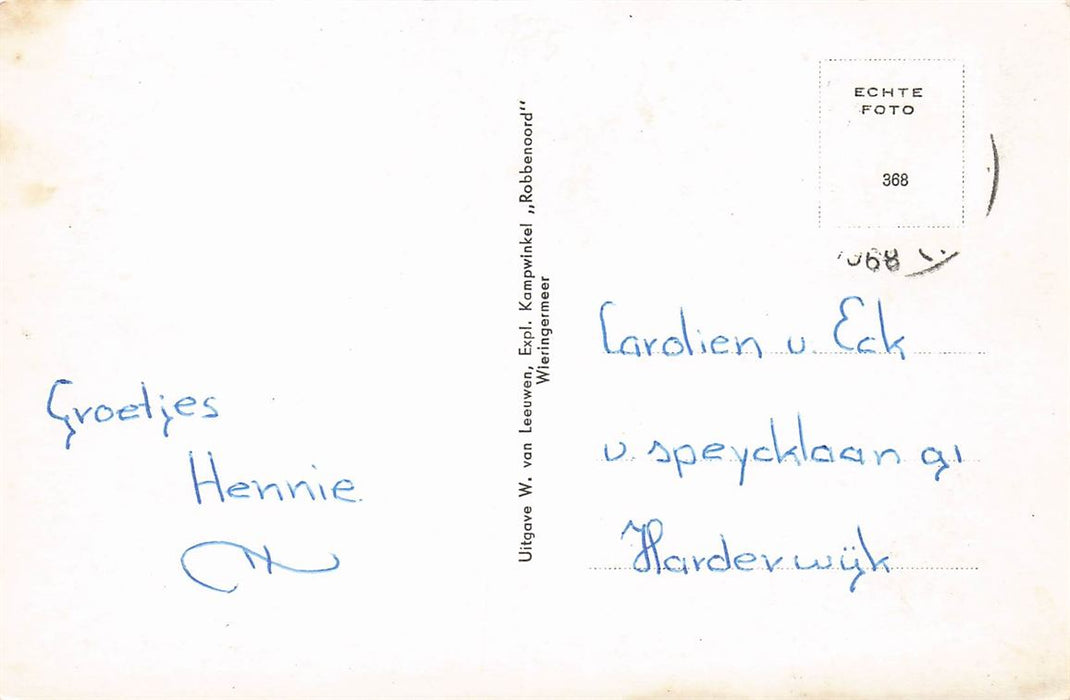 Groetjes
Hennie
Uitgave W. van Leeuwen, Expl. Kampwinkel „Robbenoord"
Wieringermeer
ECHTE
FOTO
368
Carolien v. Eck
v speycklaan 91
Harderwijk